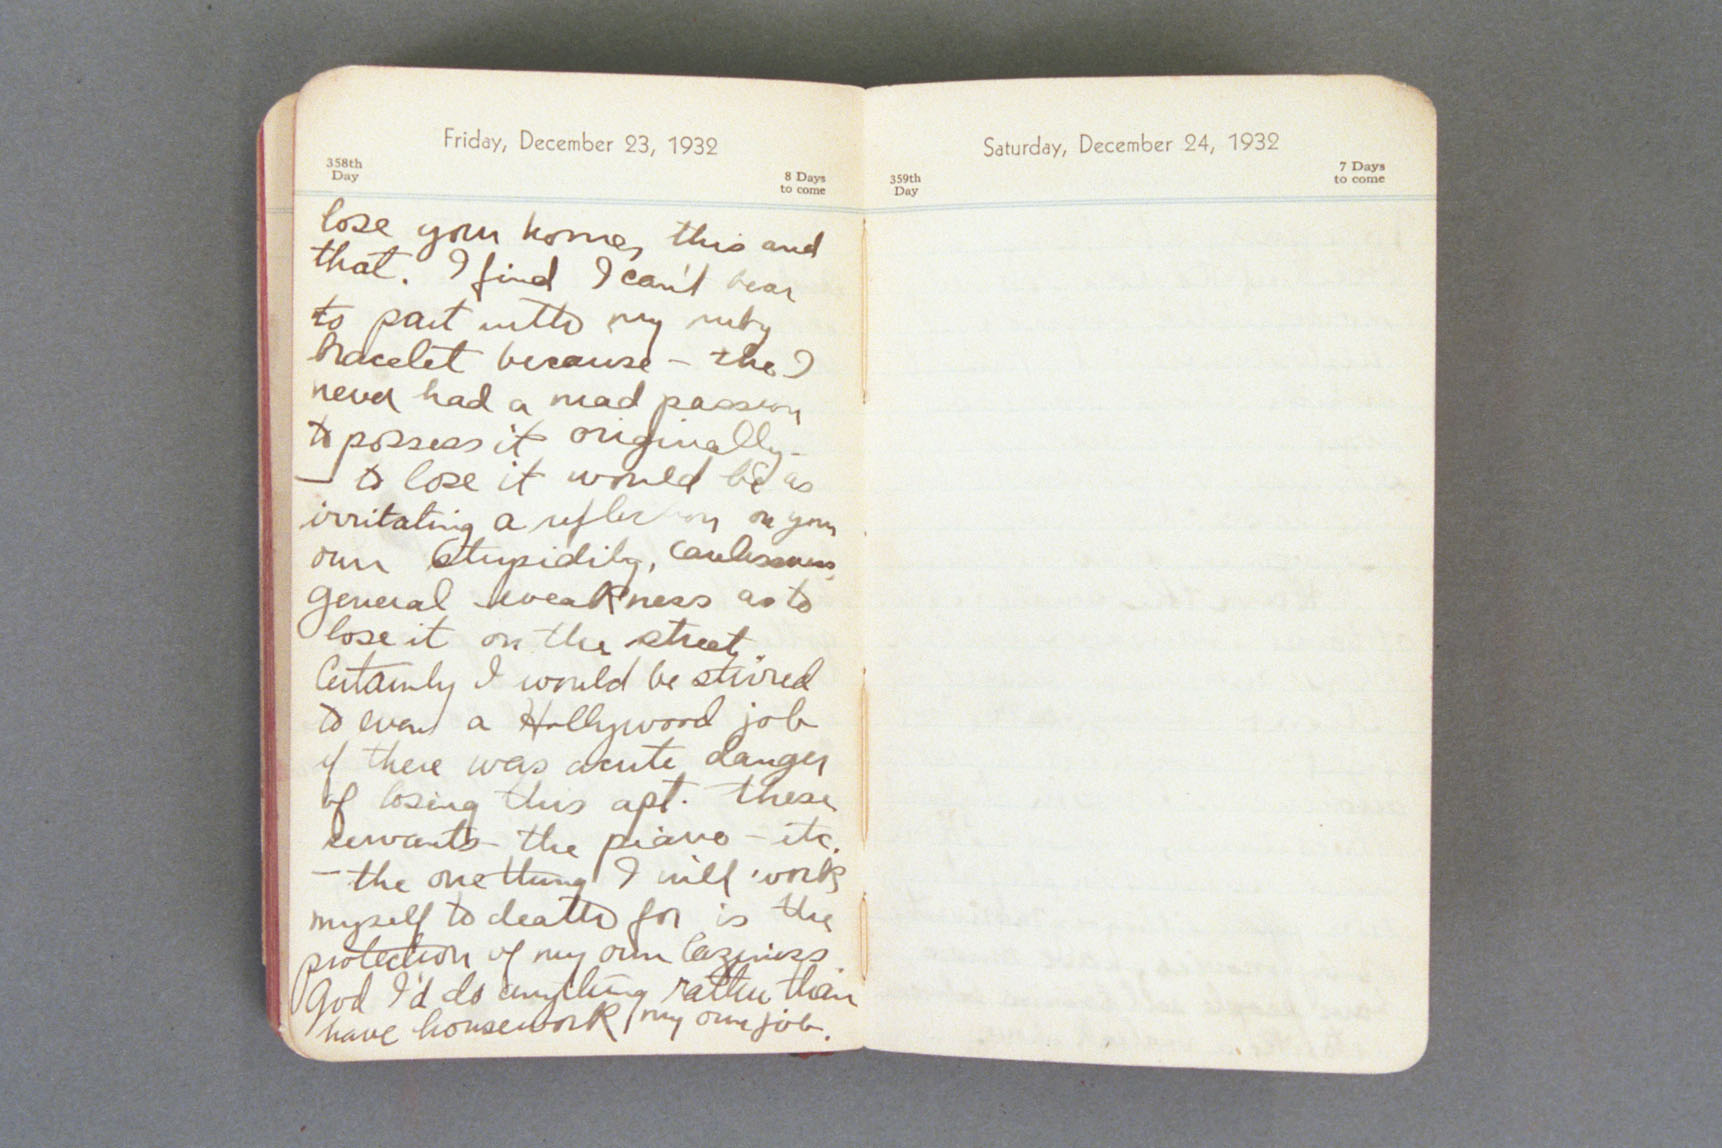 Friday, December 23, 1932
358th
Day
8 Days
to come
lose your home, this and
that. I find I can't bear
to part with my ruby
bracelet because – tho I
never had a mad passion
to possess it originally –
– to lose it would be as
irritating a reflection on your
own stupidity, carelessness,
general weakness as to
lose it on the street.
Certainly I would be stirred
to even a Hollywood job
if there was acute danger
of losing this apt. these
servants – the piano – etc.
– the one thing I will work
myself to death for is the
protection of my own laziness.
God I'd do anything rather than
have housework my own job.
Saturday, December 24, 1932
359th
Day
7 Days
to come